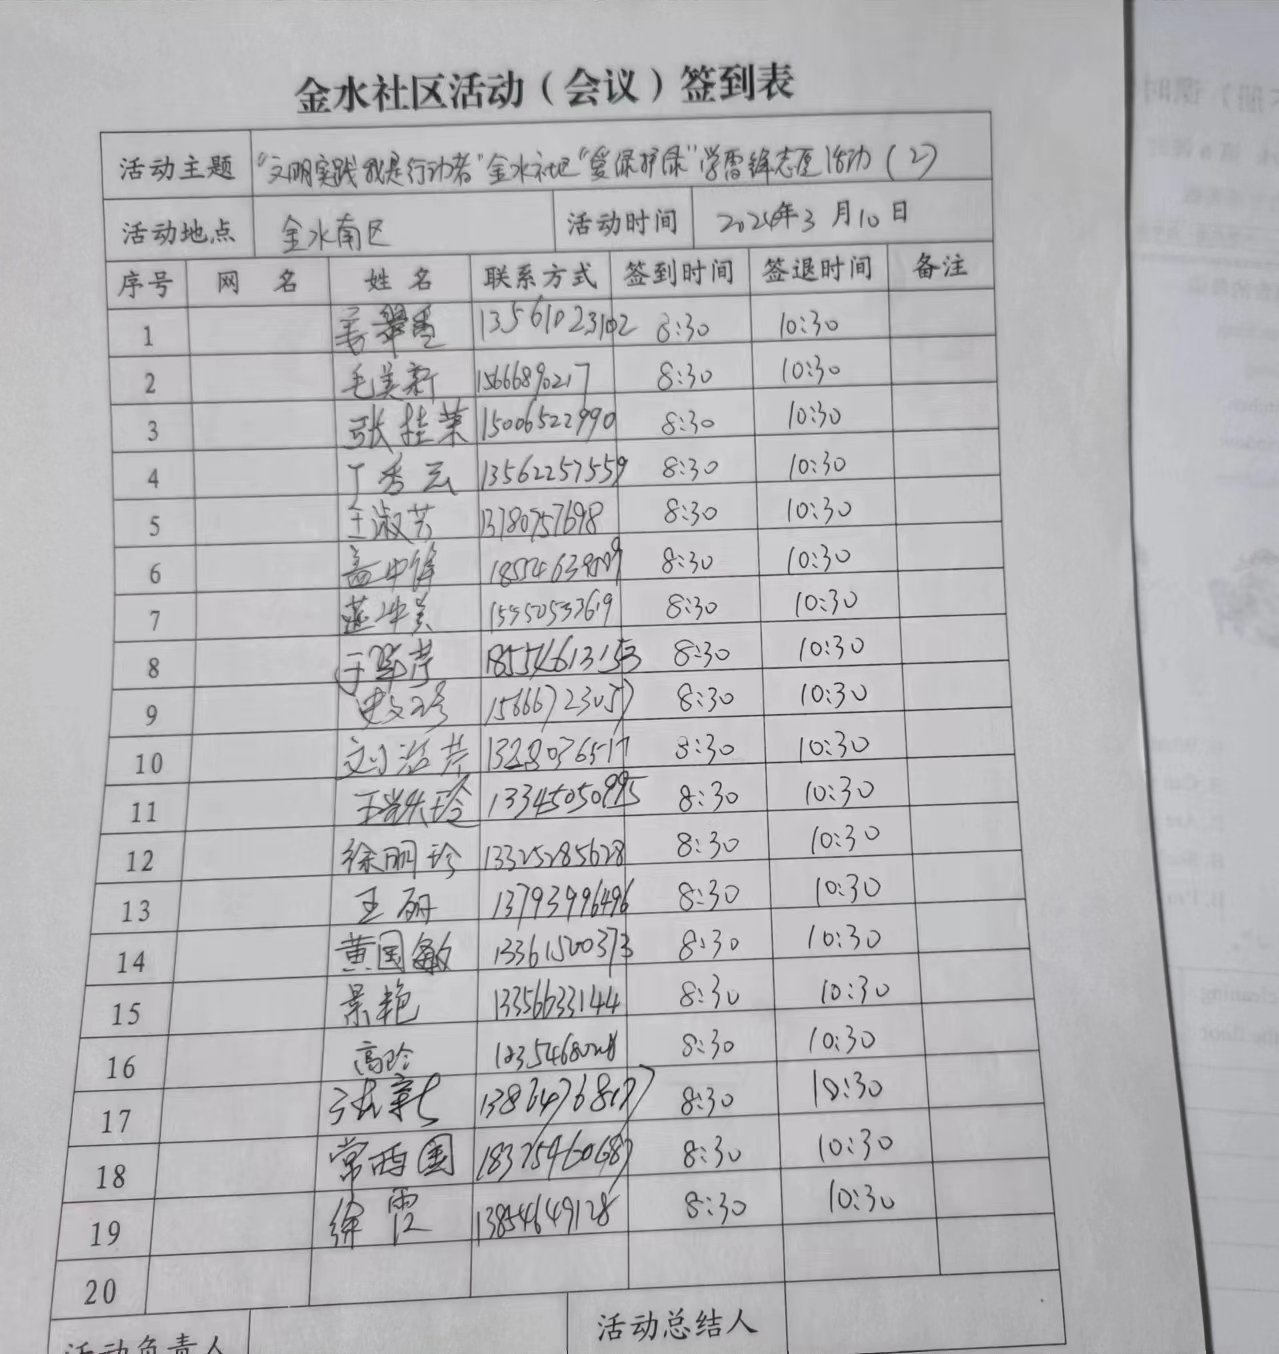 金水社区活动（会议）签到表
活动主题 “文明实践我是行动者”金水社区“爱绿护绿”学雷锋志愿活动（2）
活动地点 金水南区 活动时间 2024年3月10日
序号 网名 姓名 联系方式 签到时间 签退时间 备注
1 姜翠香 13561023102 8:30 10:30
2 毛美新 15666890217 8:30 10:30
3 张桂荣 15006522990 8:30 10:30
4 丁秀云 13562257559 8:30 10:30
5 王淑芳 13780757698 8:30 10:30
6 盖中锋 8:30 10:30
7 8:30 10:30
8 于翠芹 18554613153 8:30 10:30
9 史文珍 15666723057 8:30 10:30
10 刘洁芹 1328036517 8:30 10:30
11 13345050995 8:30 10:30
12 徐丽珍 13325285628 8:30 10:30
13 王丽 13793996496 8:30 10:30
14 黄国敏 13361500373 8:30 10:30
15 景艳 13356633144 8:30 10:30
16 高玲 8:30 10:30
17 张新 8:30 10:30
18 常西国 18325460687 8:30 10:30
19 徐霞 13854649128 8:30 10:30
20
活动负责人 活动总结人